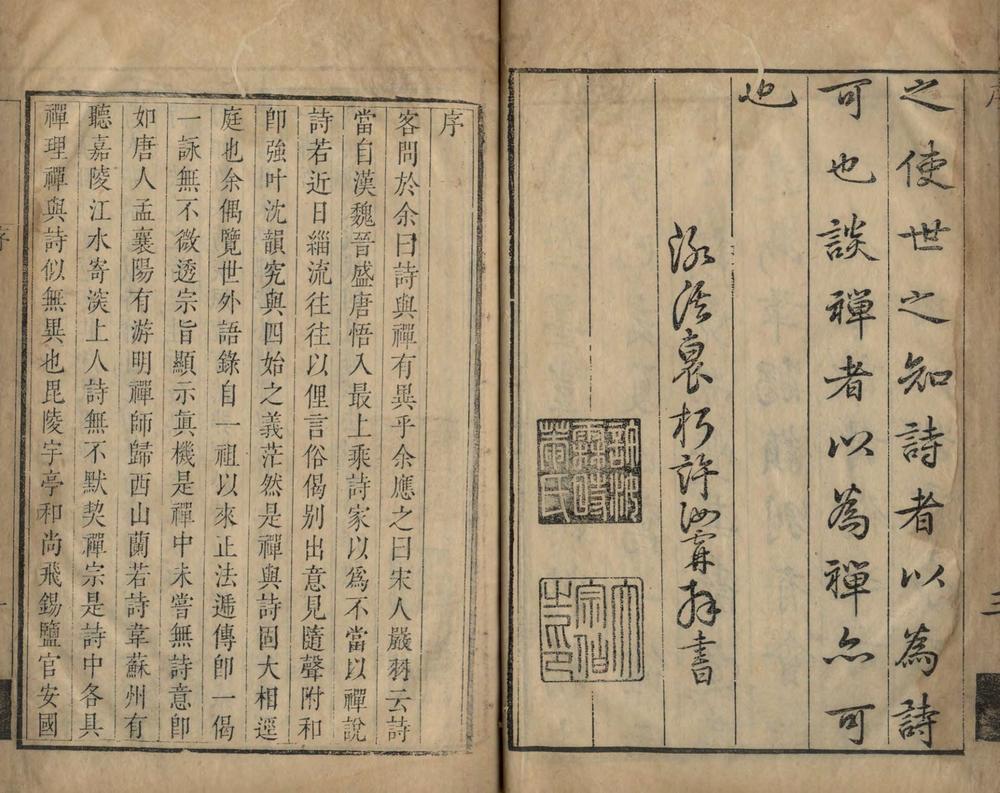 之使世之知詩者以為詩
可也談禪者以為禪亦可
也
衰朽許汝霖拜書
許汝霖時菴氏
大宗伯之印
序
客問於余曰詩與禪有異乎余應之曰宋人嚴羽云詩
當自漢魏晉盛唐悟入最上乘詩家以爲不當以禪說
詩若近日緇流往往以俚言俗偈别出意見隨聲附和
卽強叶沈韻究與四始之義茫然是禪與詩固大相逕
庭也余偶覽世外語錄自一祖以來正法遞傳卽一偈
一詠無不微透宗旨顯示眞機是禪中未嘗無詩意卽
如唐人孟襄陽有游明禪師歸西山蘭若詩韋蘇州有
聽嘉陵江水寄深上人詩無不默契禪宗是詩中各具
禪理禪與詩似無異也毘陵宇亭和尚飛錫鹽官安國